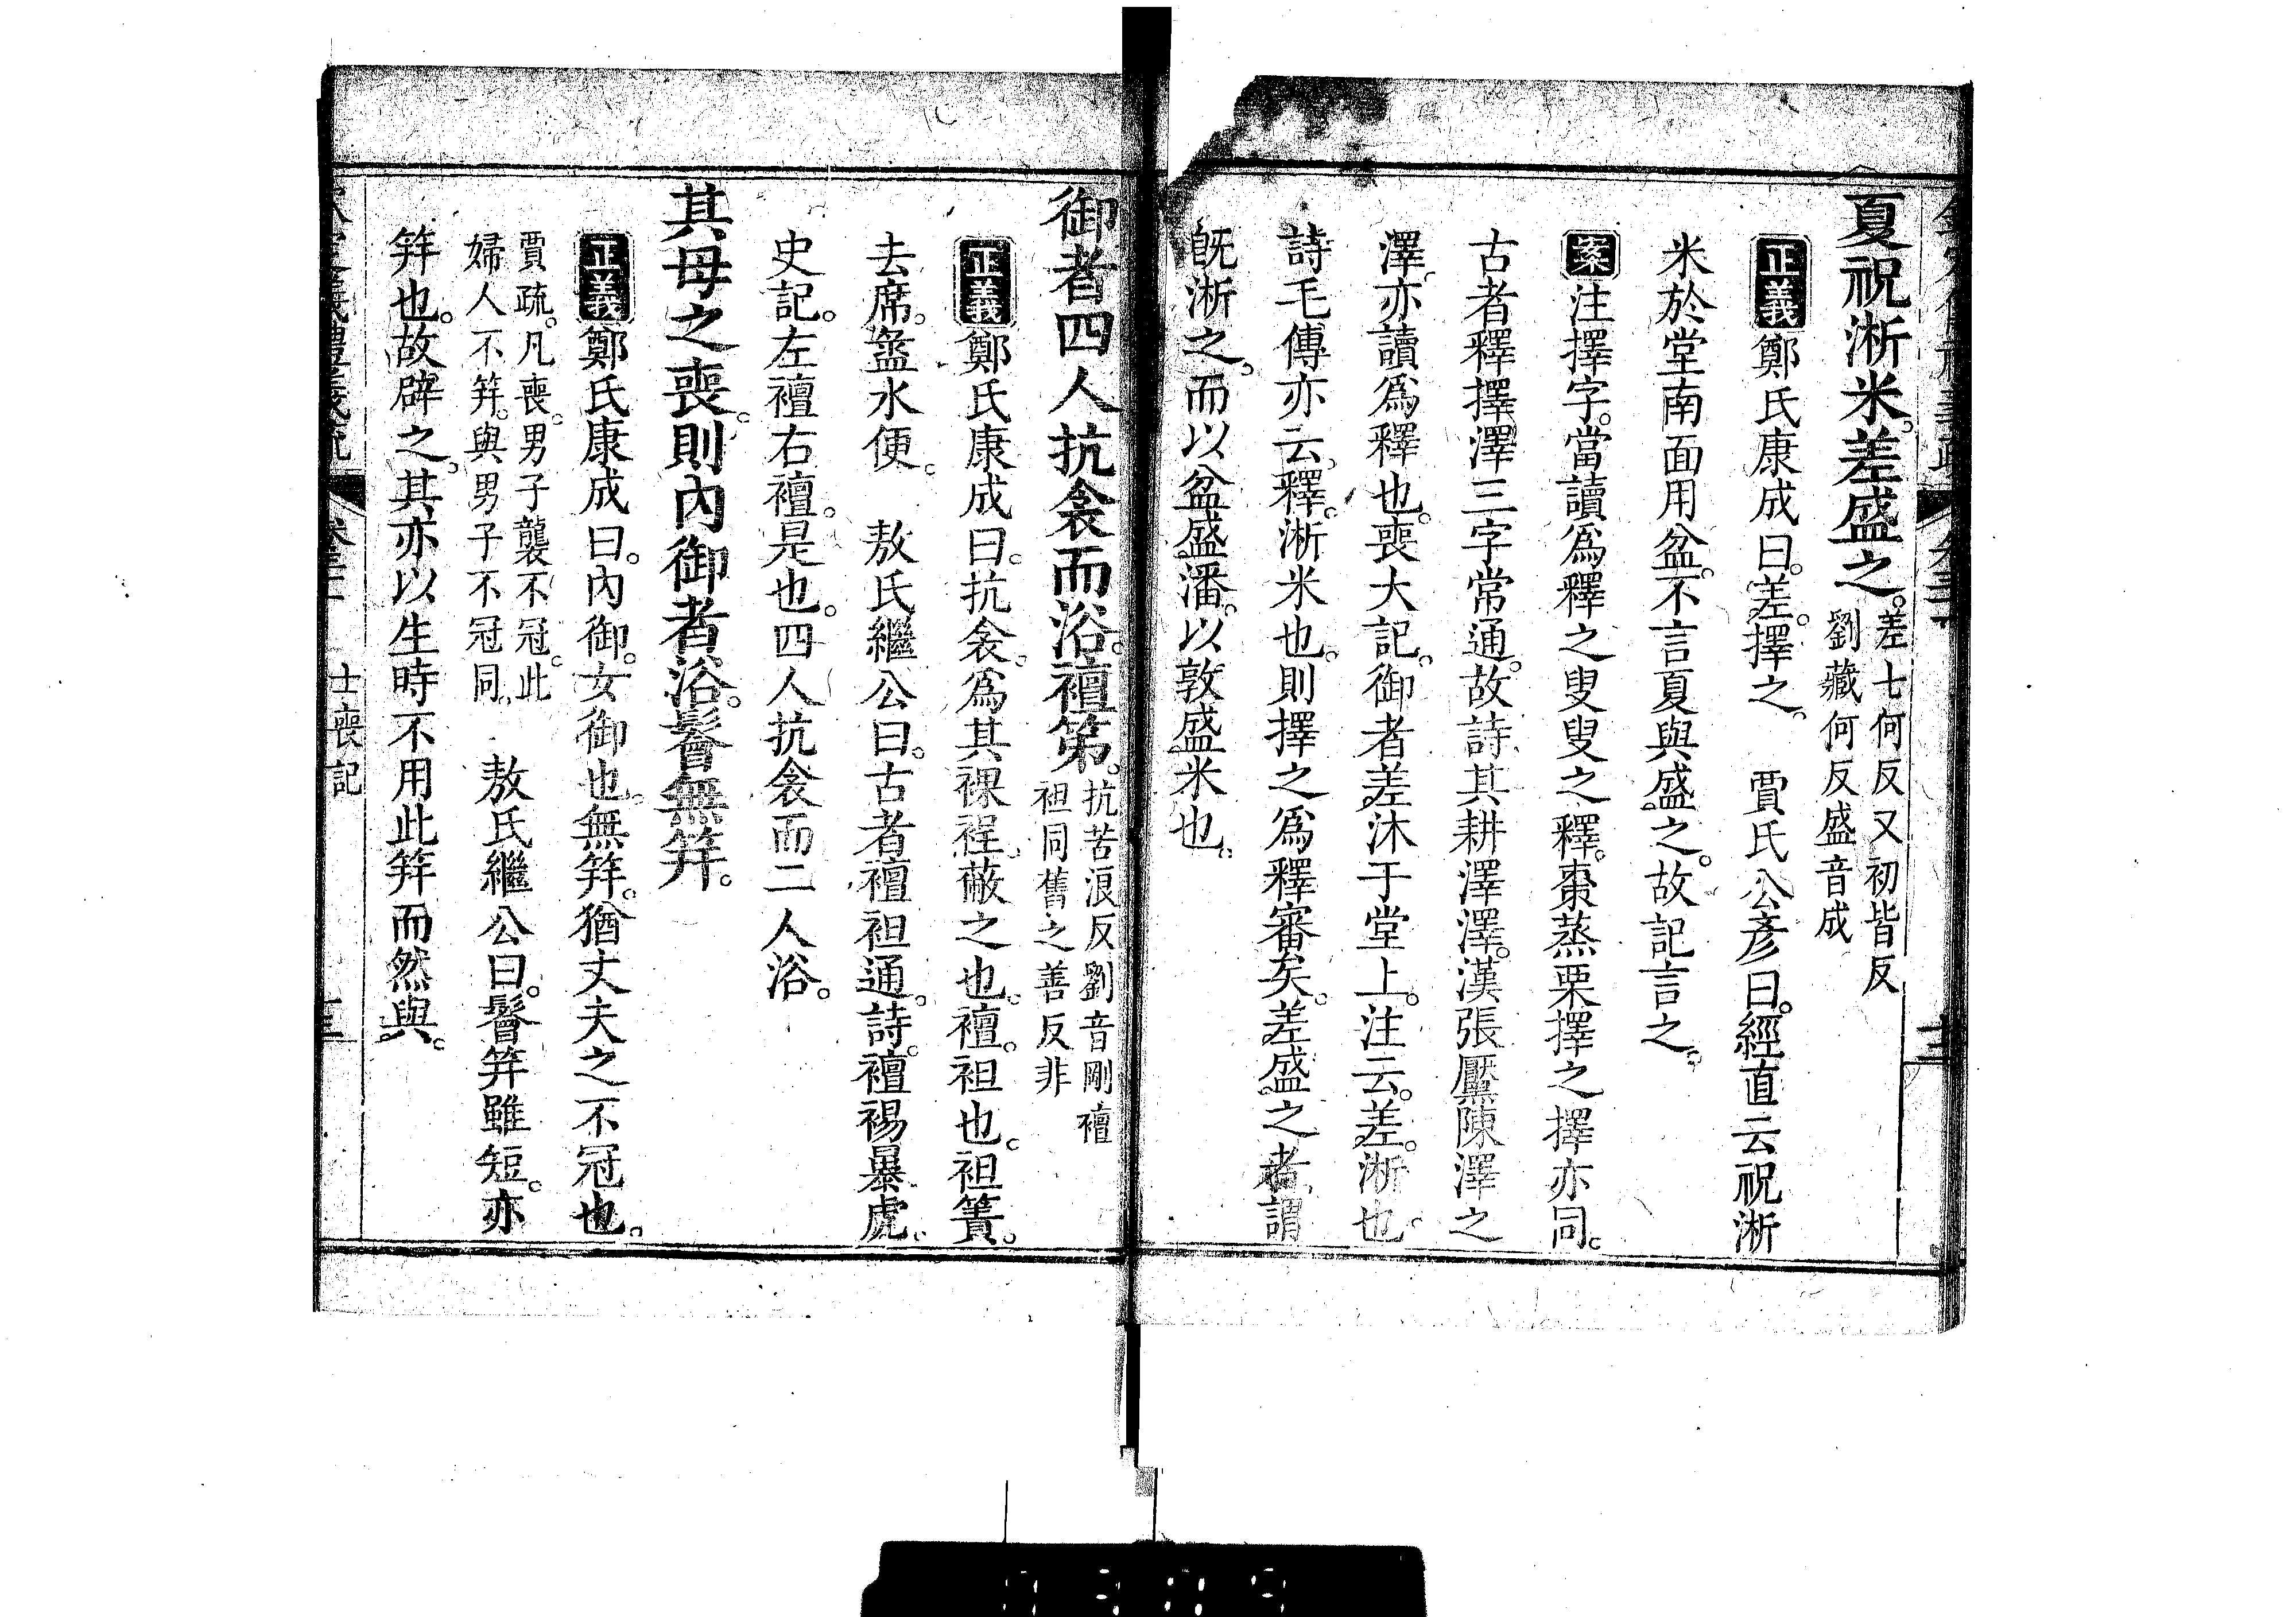 夏祝淅米。差盛之。差七何反又初皆反
劉藏何反盛音成
正義鄭氏康成曰。差。擇之。　賈氏公彥曰。經直云祝淅
米於堂南面用盆。不言夏與盛之。故記言之。
案注擇字。當讀爲釋之叟叟之釋。棗蒸栗擇之擇亦同。
古者釋擇澤三字常通。故詩其耕澤澤。漢張黶陳澤之
澤。亦讀爲釋也。喪大記。御者差沐于堂上。注云。差。淅也。
詩毛傳亦云。釋。淅米也。則擇之爲釋審矣。差盛之者。謂
旣淅之。而以盆盛潘。以敦盛米也。
御者四人抗衾而浴。襢笫。抗苦浪反劉音剛襢
袒同舊之善反非
正義鄭氏康成曰。抗衾。爲其裸裎。蔽之也。襢。袒也。袒簀。
去席。盝水便。　敖氏繼公曰。古者襢袒通。詩。襢裼暴虎。
史記。左襢右襢。是也。四人抗衾而二人浴。
其母之喪。則內御者浴。鬠無笄。
正義鄭氏康成曰。內御。女御也。無笄。猶丈夫之不冠也。
賈疏。凡喪。男子襲不冠。此
婦人不笄。與男子不冠同。　敖氏繼公曰。鬠笄雖短。亦
笄也。故辟之。其亦以生時不用此笄而然與。
士喪記